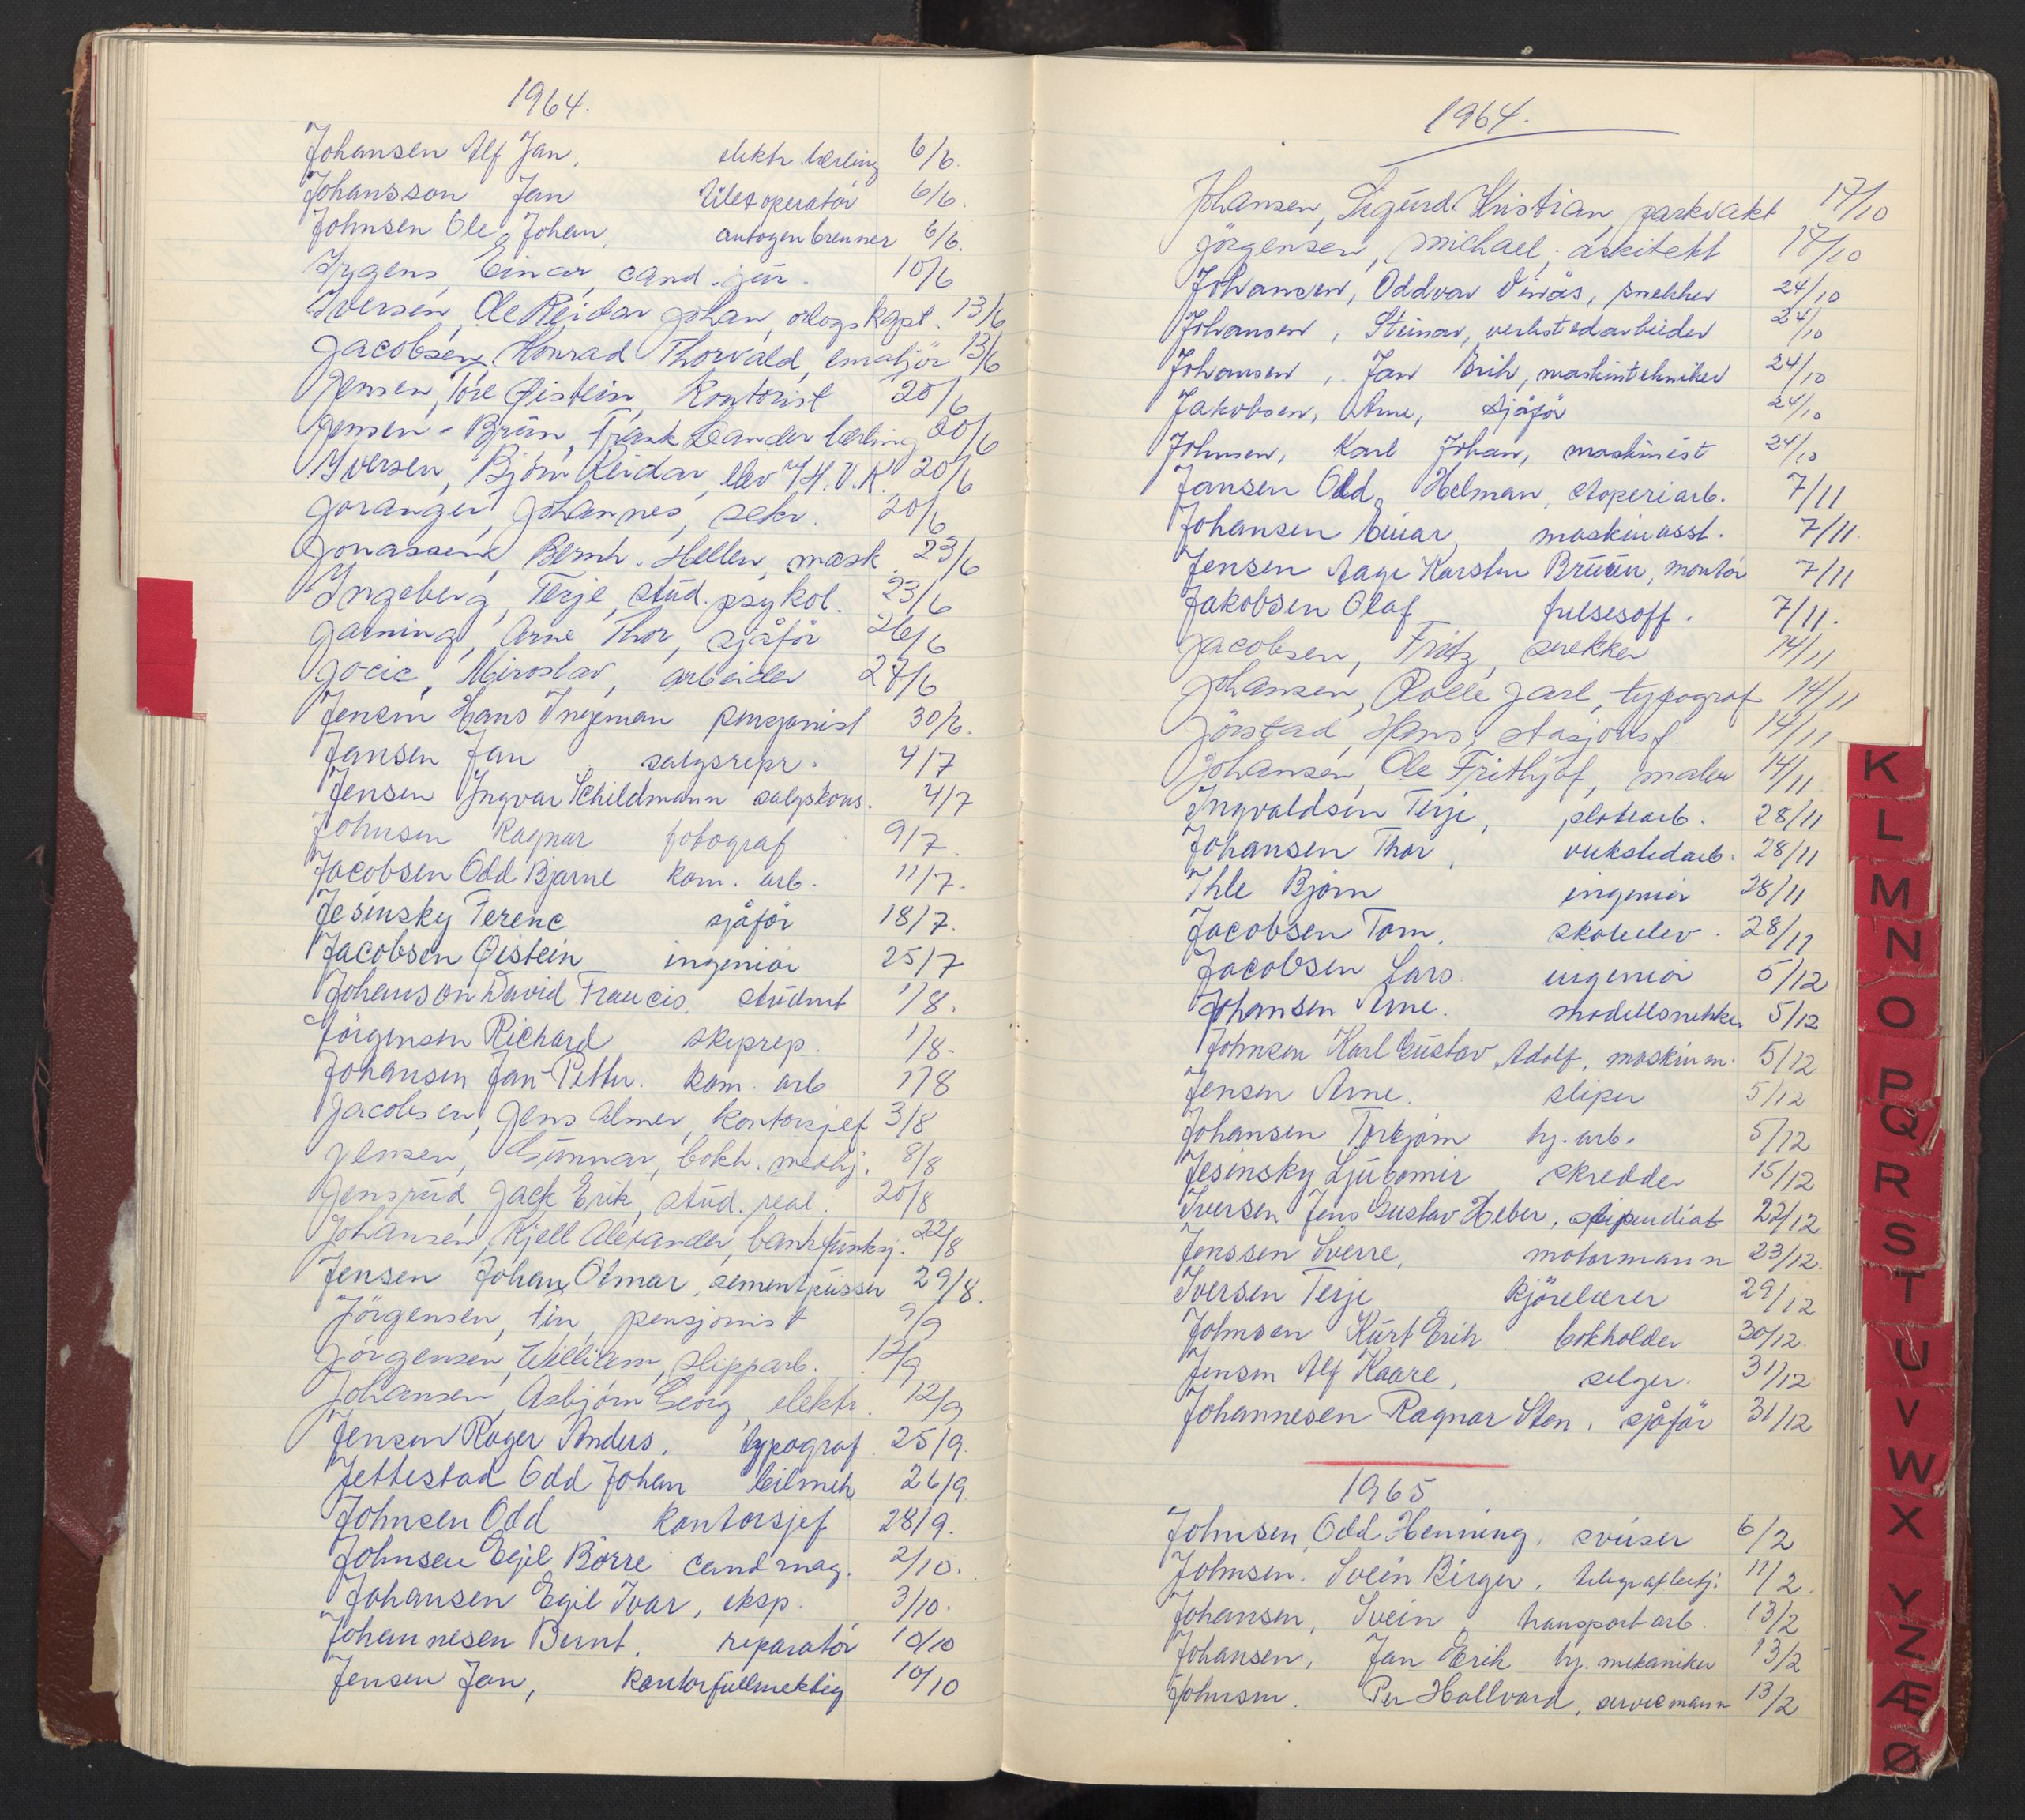 1964.
Johansen Alf Jan, elektr. lærling 6/6.
Johansson Jan telexoperatör 6/6.
Johnsen Ole Johan, autogenbrenner 6/6.
Irgens, Einar, cand. jur. 10/6
Iversen, Ole Reidar Johan, orlogskapt. 13/6
Jacobsen, Konrad Thorvald, emaljör 13/6
Jensen, Tore Øistein, Kontorist 20/6
Jensen-Brun, Frank Leander lærling 20/6
Iversen, Björn Reidar, elev 20/6
Joranger, Johannes, sekr. 20/6
Jonassen, Bernh. Hellen, mask. 23/6
Ingeberg, Terje, stud. psykol. 23/6
Jarning, Arne Thor, sjåför 26/6
Jocic, Miroslav, arbeider 27/6
Jensen Hans Ingeman pensjonist 30/6.
Jansen Jan salgsrepr. 4/7
Jensen Ingvar Schildmann salgskons. 4/7
Johnsen Ragnar fotograf 9/7.
Jacobsen Odd Bjarne kom. arb. 11/7.
Jesinsky Ferenc sjåför 18/7.
Jacobsen Øistein ingeniör 25/7
Johanson David Francis, student 1/8.
Jörgensen Richard skiprep. 1/8.
Johansen Jan-Petter. kom. arb 1/8
Jacobsen, Jens Almer, kontorsjef 3/8
Jensen, Gunnar, bokh. medhj. 8/8
Jensrud, Jack Erik, stud. real. 20/8
Johansen, Kjell Alexander, bankfunksj. 22/8
Jensen Johan Olmar, sementpusser 29/8.
Jörgensen, pensjonist 9/9
Jörgensen, William, slipparb. 12/9
Johansen, Asbjörn Georg, elektr. 12/9
Jensen Roger Anders, typograf 25/9.
Jettestad Odd Johan bilmek 26/9
Johnsen Odd kontorsjef 28/9.
Johnsen Egil Börre cand mag. 2/10.
Johansen Egil Ivar, eksp. 3/10.
Johannesen Bernt, reparatör 10/10
Jensen Jan, kontorfullmektig 10/10
1964.
Johansen, Sigurd Kristian, parkvakt 17/10
Jörgensen, Michael, arkitekt 17/10
Johansen, Oddvar Venås, snekker 24/10
Johansen, Steinar, verkstedarbeider 24/10
Johansen, Jan Erik, maskintekniker 24/10
Jakobsen, Arne, Sjåför 24/10
Johnsen, Karl Johan, maskinist 24/10
Jansen Odd Helman, støperiarb. 7/11
Johansen Einar, maskinasst. 7/11.
Jensen Aage Karsten Bruun, montör 7/11
Jakobsen Olaf fulsesoff. 7/11.
Jacobsen, Fritz, snekker 14/11
Johansen, Rolle Jarl, typograf 14/11
Jörstad, Hans, stasjonsf. 14/11
Johansen, Ole Frithjof, maler 14/11
Ingvaldsen Terje, platearb. 28/11
Johansen Thor, verkstedarb. 28/11
Ihle Björn ingeniör 28/11
Jacobsen Tom, skoleelev. 28/11
Jacobsen Lars ingeniör 5/12
Johansen Arne. modellsnekker 5/12
Johnsen Karl Gustav Adolf, maskinm. 5/12
Jensen Arne. sliper 5/12
Johansen Torbjørn hj. arb. 5/12
Jesinsky Ljubomir skredder 15/12
Iversen Jens Gustav Heber, stipendiat 22/12
Jenssen Sverre, motormann 23/12.
Iversen Terje kjörelærer 29/12
Johnsen Kurt Erik bokholder 30/12.
Jensen Alf Kaare, selger. 31/12
Johannesen Ragnar Sten, sjåför 31/12
1965
Johnsen, Odd Henning, sveiser 6/2
Johnsen. Svein Birger, telegrafbetj. 11/2.
Johansen, Svein, transportarb. 13/2
Johansen, Jan Erik hj. mekaniker 13/2
Johnsen. Per Hallvard, servicemann 13/2
K
L
M
N
O
P
Q
R
S
T
U
V
W
X
Y
Z
Æ
Ø